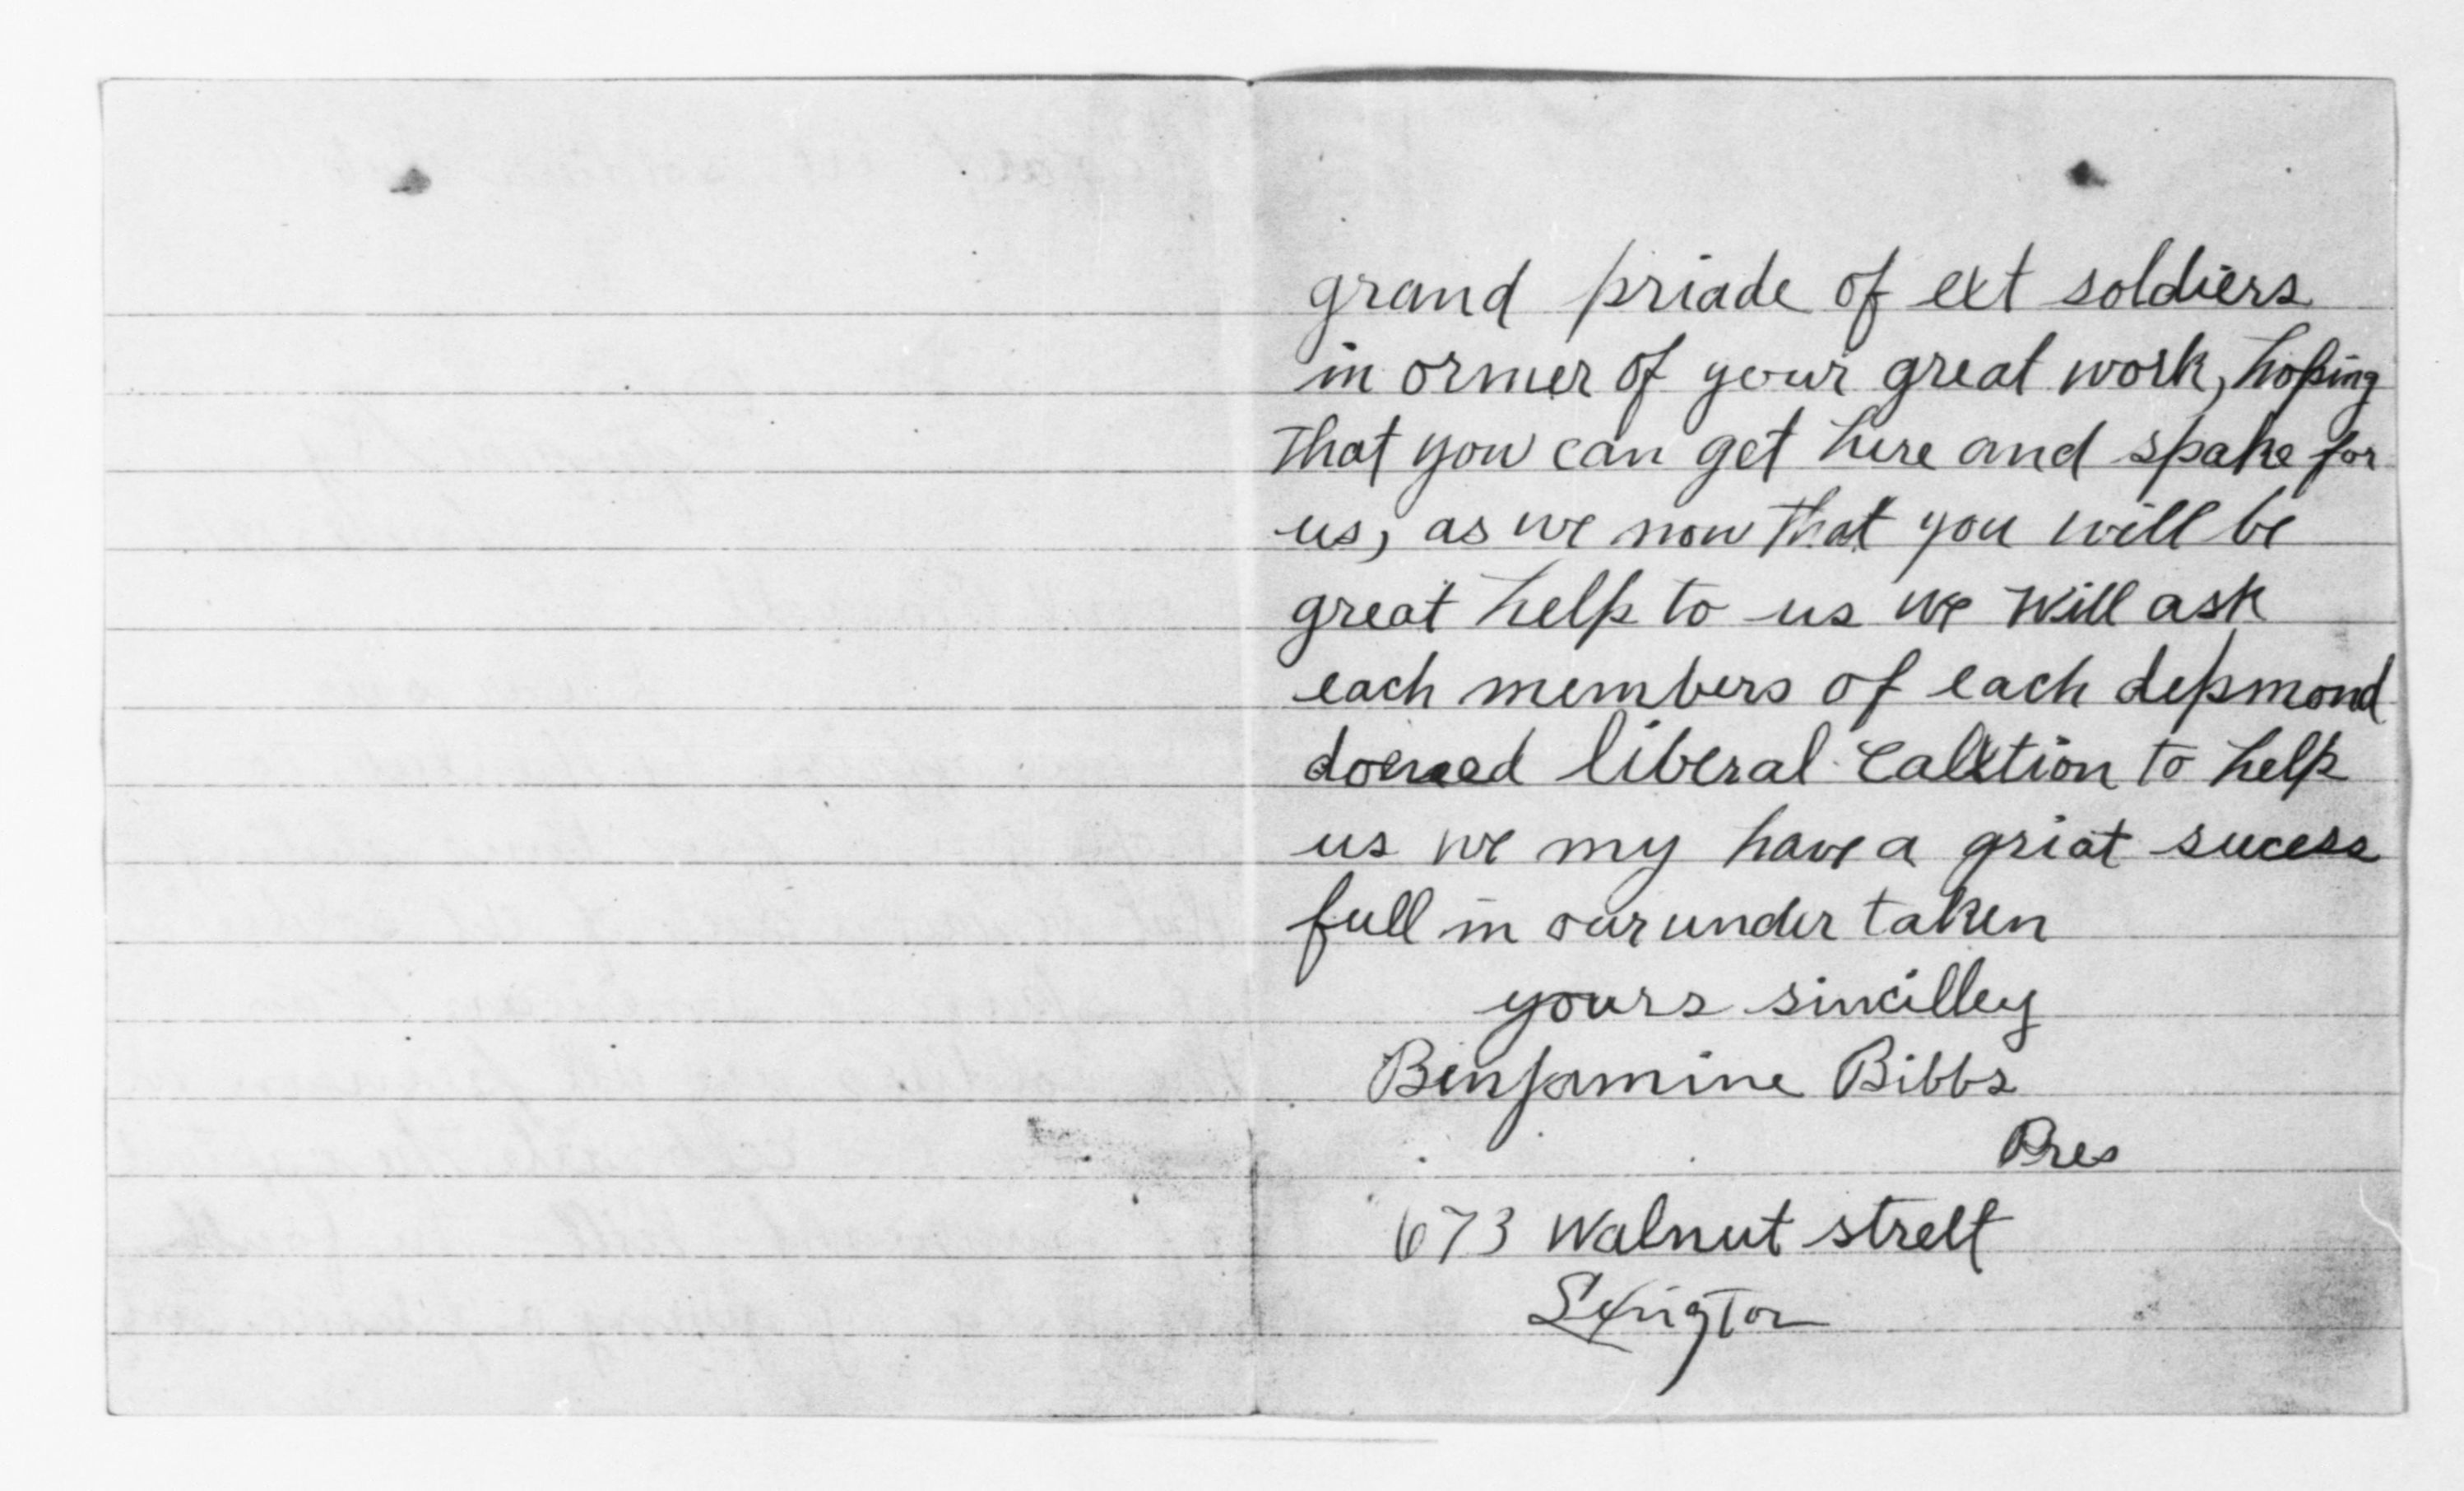 grand priade of ext soldiers
in ormer of your great work, hoping
that you can get here and spake for
us, as we now that you will be
great help to us we will ask
each members of each depmond
liberal to help
us we my have a griat sucess
full in our under taken
yours sincilley
Benjamine Bibbs
Pres
673 Walnut strelt
Lexington